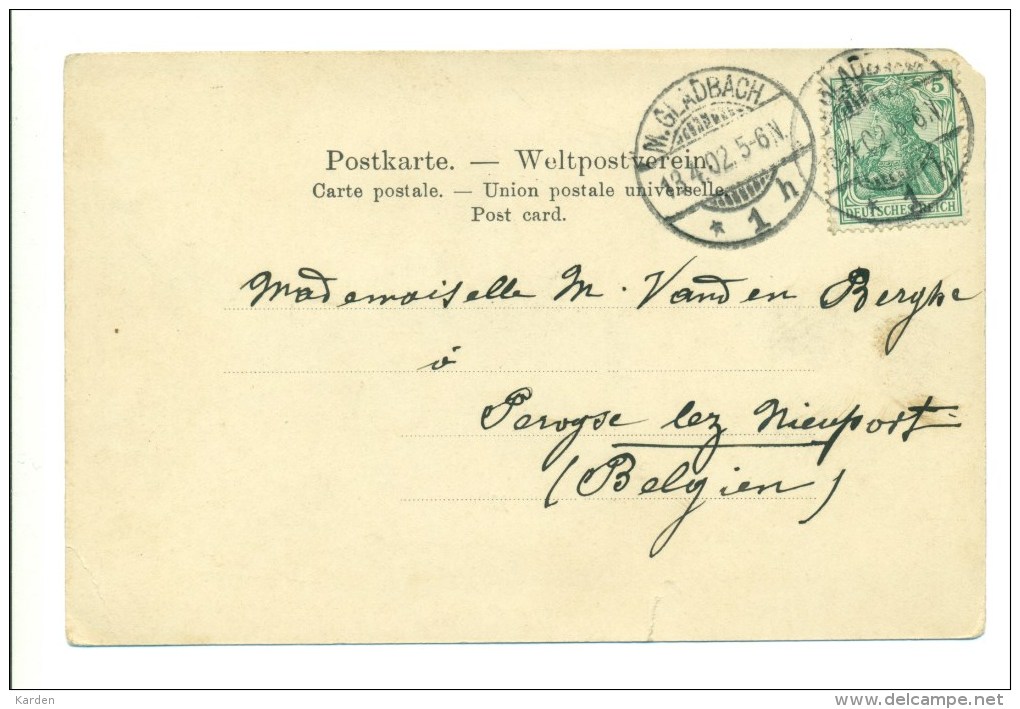 Postkarte. — Weltpostverein.
Carte postale. — Union postale universelle.
Post card.
M. GLADBACH
13.4.02. 5-6N.
* 1 h
GLADBACH
13.4.02. 5-6N.
* 1 h
5
DEUTSCHES REICH
Mademoiselle M. Vanden Berghe
à
Peroyse lez Nieuport
(Belgien)
Karden
www.delcampe.net